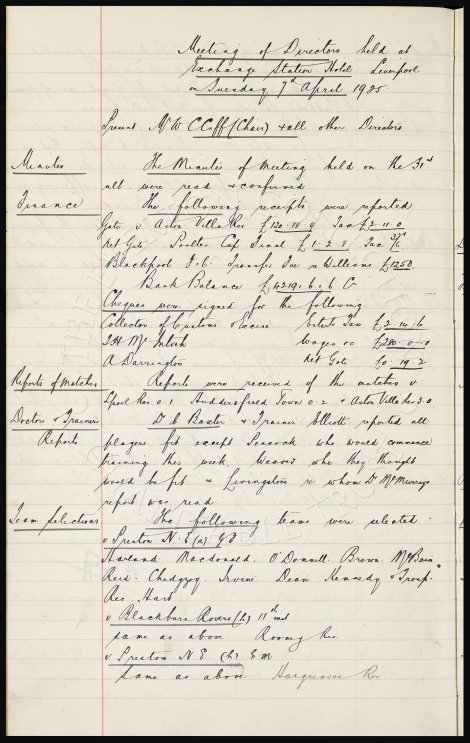 Meeting of Directors held at
Exchange Station Hotel Liverpool
on Tuesday 7th April 1925
Present Mr W C Cuff (Chair) & all other Directors
Minutes The Minutes of Meeting held on the 31st
ult were read & confirmed
Finance The following receipts were reported
Gate v Aston Villa Res £120.18.9 Tax £2.11.0
Net Gate Cup Final £1.2.8 Tax
Blackpool F.C. Transfer Fee v Williams £1250.
Bank Balance £4219.6.6 C
Cheques were signed for the following
Collector of Customs & Excise Enter's Tax £2.14.6
T.H. McIntosh Wages &c £280.0.0
A Darrington Net Gate £0.19.2
Reports of Matches Reports were received of the matches v
L'pool Res 0.1 Huddersfield Town 0.2 & Aston Villa Res 3.0
Doctor & Trainer Dr C Baxter & Trainer Elliott reported all
Reports players fit except Peacock who would commence
training this week, Weaver who they thought
would be fit & Livingstone re whom Dr McMurrays
report was read.
Team Selections The following teams were selected
v Preston N.E (a) G.F.
Harland Macdonald. O'Donnell. Brown McBain
Reid. Chedgzoy. Irvine Dean Kennedy & Troup.
Res Hart
v Blackburn Rovers (h) 11th inst
same as above Rooney Res.
v Preston N.E. (h) E.M
same as above Hargreaves Res